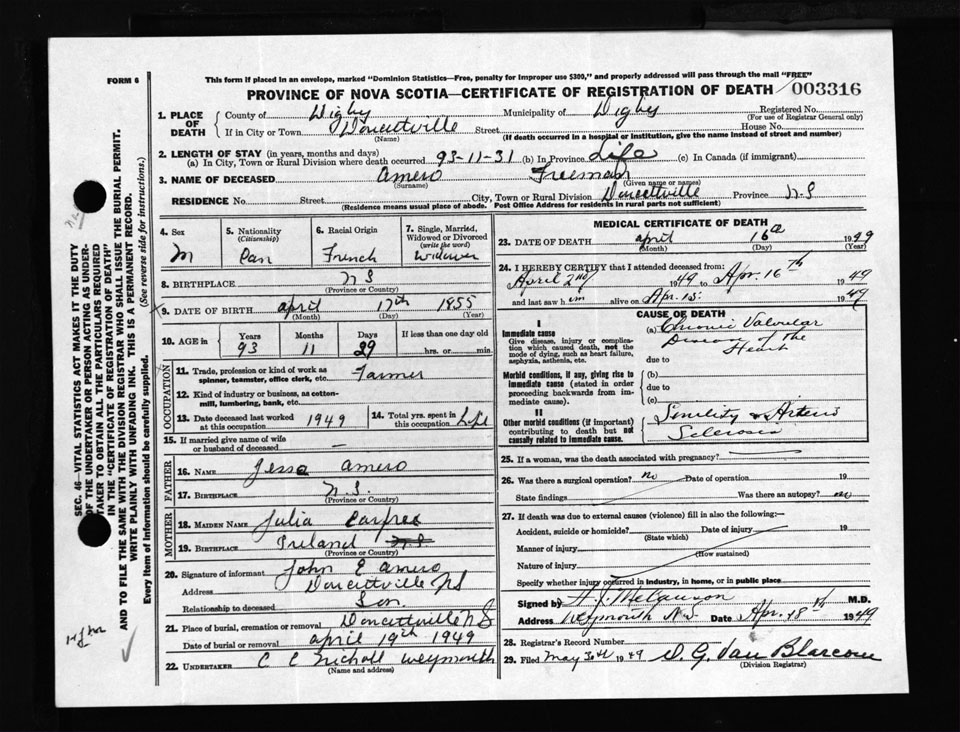 FORM 6
This form if placed in an envelope, marked "Dominion Statistics—Free, penalty for improper use $300," and properly addressed will pass through the mail "FREE"
PROVINCE OF NOVA SCOTIA—CERTIFICATE OF REGISTRATION OF DEATH 003316
1. PLACE OF DEATH County of Digby Municipality of Digby Registered No.
(For use of Registrar General only)
If in City or Town Doucettville Street House No.
(Name) (If death occurred in a hospital or institution, give the name instead of street and number)
2. LENGTH OF STAY (in years, months and days)
(a) In City, Town or Rural Division where death occurred 93-11-31 (b) In Province Life (c) In Canada (if immigrant)
3. NAME OF DECEASED Amero Freeman
(Surname) (Given name or names)
RESIDENCE No. Street City, Town or Rural Division Doucettville Province N S
(Residence means usual place of abode. Post Office Address for residents in rural parts not sufficient)
4. Sex 5. Nationality 6. Racial Origin 7. Single, Married, Widowed or Divorced
(Citizenship) (write the word)
M Can French Widower
8. BIRTHPLACE N S
(Province or Country)
9. DATE OF BIRTH April 17th 1855
(Month) (Day) (Year)
10. AGE in Years Months Days If less than one day old
93 11 29 hrs. or min.
OCCUPATION
11. Trade, profession or kind of work as spinner, teamster, office clerk, etc. Farmer
12. Kind of industry or business, as cotton-mill, lumbering, bank, etc.
13. Date deceased last worked at this occupation 1949 14. Total yrs. spent in this occupation Life
15. If married give name of wife or husband of deceased —
FATHER
16. NAME Jesse Amero
17. BIRTHPLACE N.S.
(Province or Country)
MOTHER
18. MAIDEN NAME Julia
19. BIRTHPLACE Ireland N.S.
(Province or Country)
20. Signature of informant John E Amero
Address Doucettville NS
Relationship to deceased Son
21. Place of burial, cremation or removal Doucettville N S
Date of burial or removal April 19th 1949
22. UNDERTAKER C C Nicholl Weymouth
(Name and address)
MEDICAL CERTIFICATE OF DEATH
23. DATE OF DEATH April 16th 1949
(Month) (Day) (Year)
24. I HEREBY CERTIFY that I attended deceased from:
April 2nd 1949 to Apr. 16th 1949
and last saw him alive on Apr. 15 1949
CAUSE OF DEATH
I
Immediate cause (a) Chronic Valvular
Give disease, injury or complication which caused death, not the mode of dying, such as heart failure, asphyxia, asthenia, etc. Disease of the
Heart
due to
Morbid conditions, if any, giving rise to immediate cause (stated in order proceeding backwards from immediate cause). (b)
due to
(c)
II
Other morbid conditions (if important) contributing to death but not causally related to immediate cause. Senility & Arterio
Sclerosis
25. If a woman, was the death associated with pregnancy?
26. Was there a surgical operation? no Date of operation 19
State findings Was there an autopsy? no
27. If death was due to external causes (violence) fill in also the following:—
Accident, suicide or homicide? Date of injury 19
(State which)
Manner of injury
(How sustained)
Nature of injury
Specify whether injury occurred in industry, in home, or in public place
Signed by M.D.
Address Weymouth N.S Date Apr. 18th 1949
28. Registrar's Record Number
29. Filed May 30th 1949 D. G. Van Blarcom
(Division Registrar)
SEC. 46—VITAL STATISTICS ACT MAKES IT THE DUTY
OF THE UNDERTAKER OR PERSON ACTING AS UNDER-
TAKER TO OBTAIN ALL THE PARTICULARS REQUIRED
IN THE "CERTIFICATE OF REGISTRATION OF DEATH"
AND TO FILE THE SAME WITH THE DIVISION REGISTRAR WHO SHALL ISSUE THE BURIAL PERMIT.
WRITE PLAINLY WITH UNFADING INK. THIS IS A PERMANENT RECORD.
Every item of information should be carefully supplied. (See reverse side for instructions.)